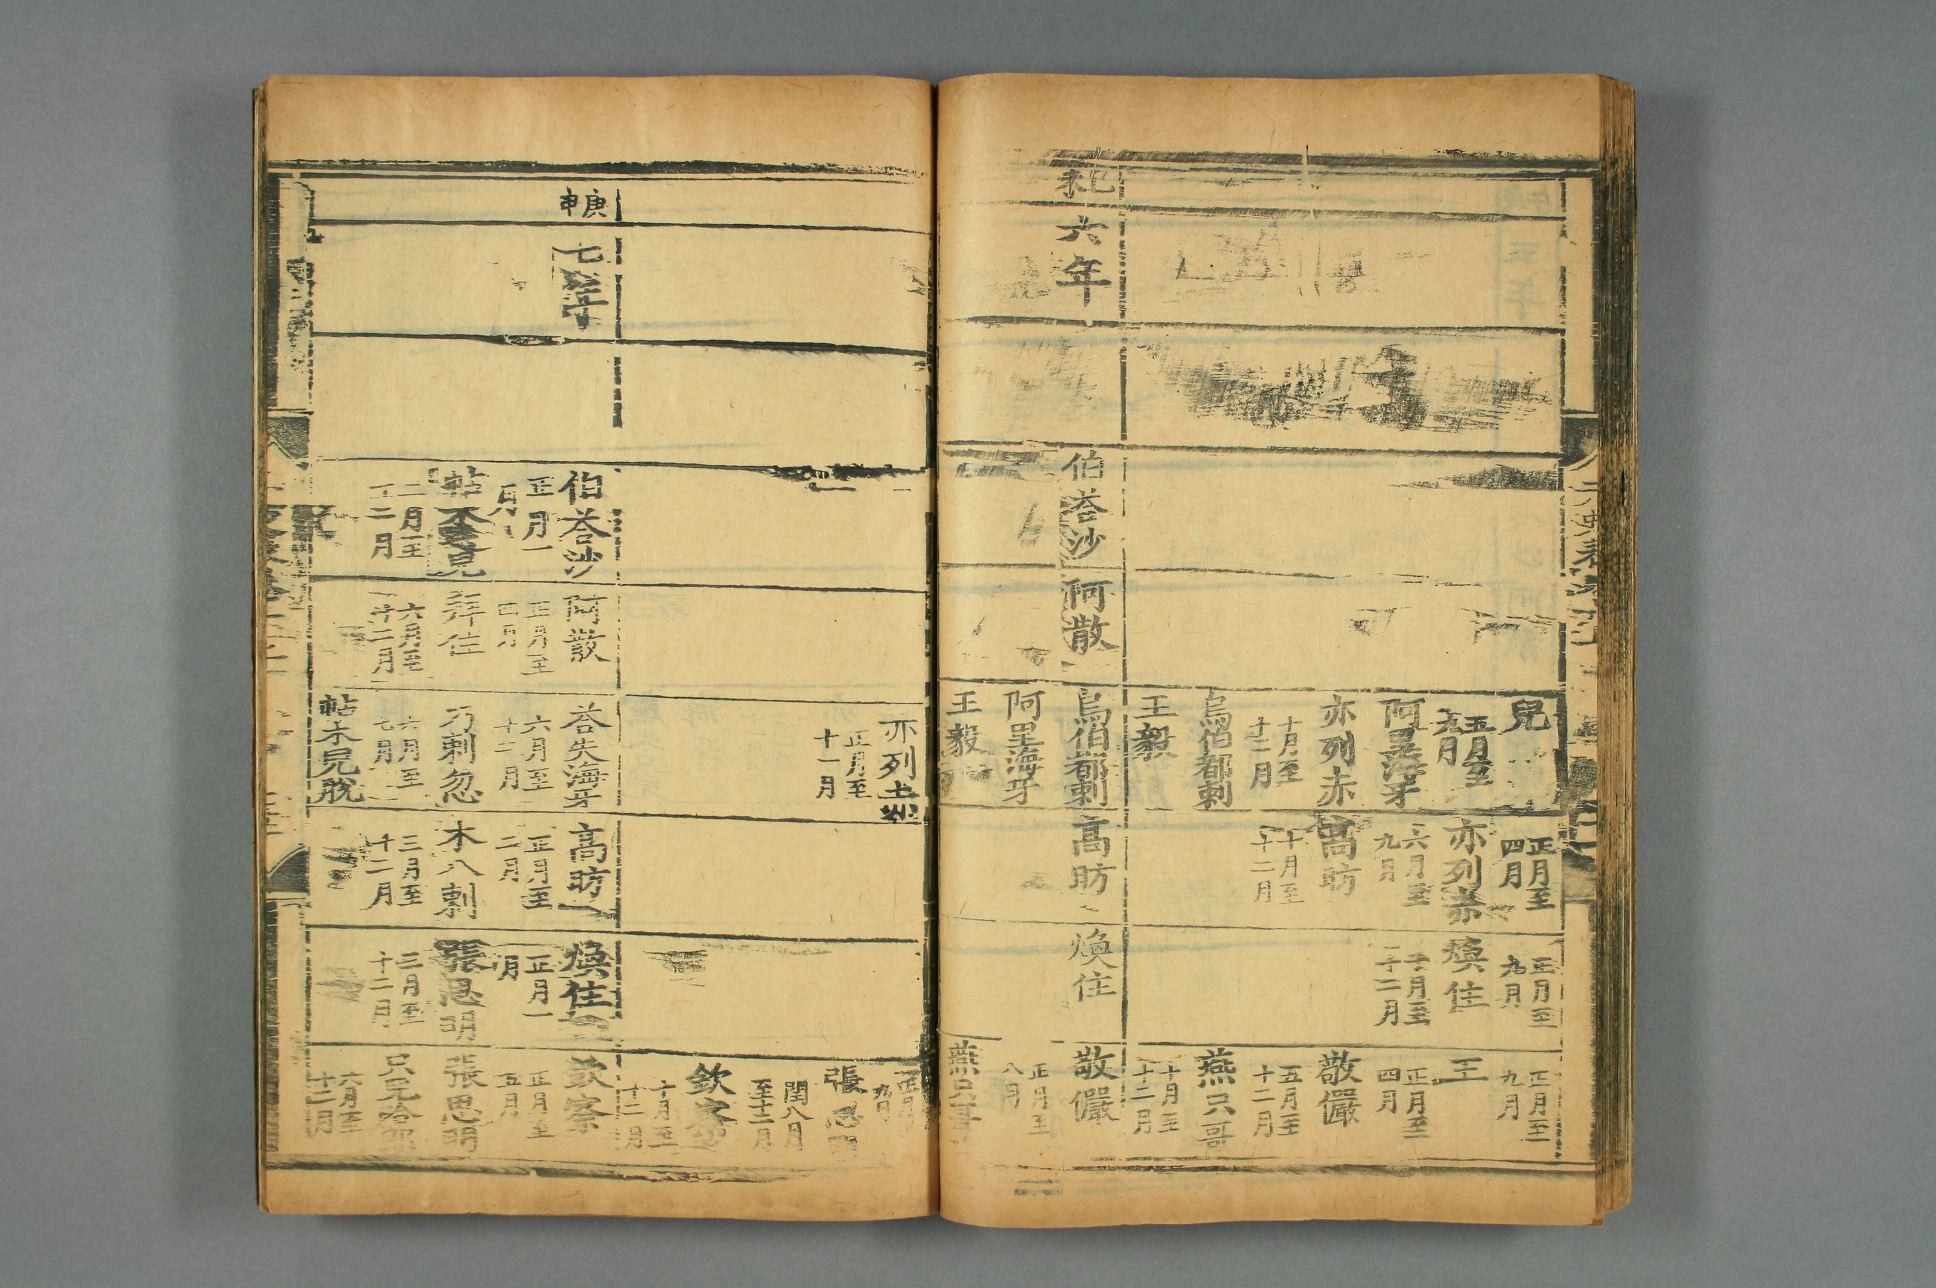 兒 正月至四月 正月至九月 正月至九月
五月至九月 亦列赤 煥住 王
阿里海牙 六月至九月 十月至十二月 正月至四月
亦列赤 高昉 敬儼
十月至十二月 十月至十二月 五月至十二月
烏伯都剌 燕只哥
王毅 十月至十二月
六年 伯荅沙 阿散 烏伯都剌 高昉 煥住 敬儼
阿里海牙 正月至八月
王毅 燕只哥
亦列 正月至九月
正月至十一月 張思明
閏八月至十二月
欽察
十月至十二月
庚申 七年 伯荅沙 阿散 荅失海牙 高昉 煥住 欽察
正月一月 正月至四月 六月至十二月 正月至二月 正月一月 正月至五月
帖木兒 拜住 乃剌忽 木八剌 張思明 張思明
二月至十二月 六月至十二月 六月至七月 三月至十二月 三月至十二月 只兒哈郎
帖木兒脫 六月至十二月